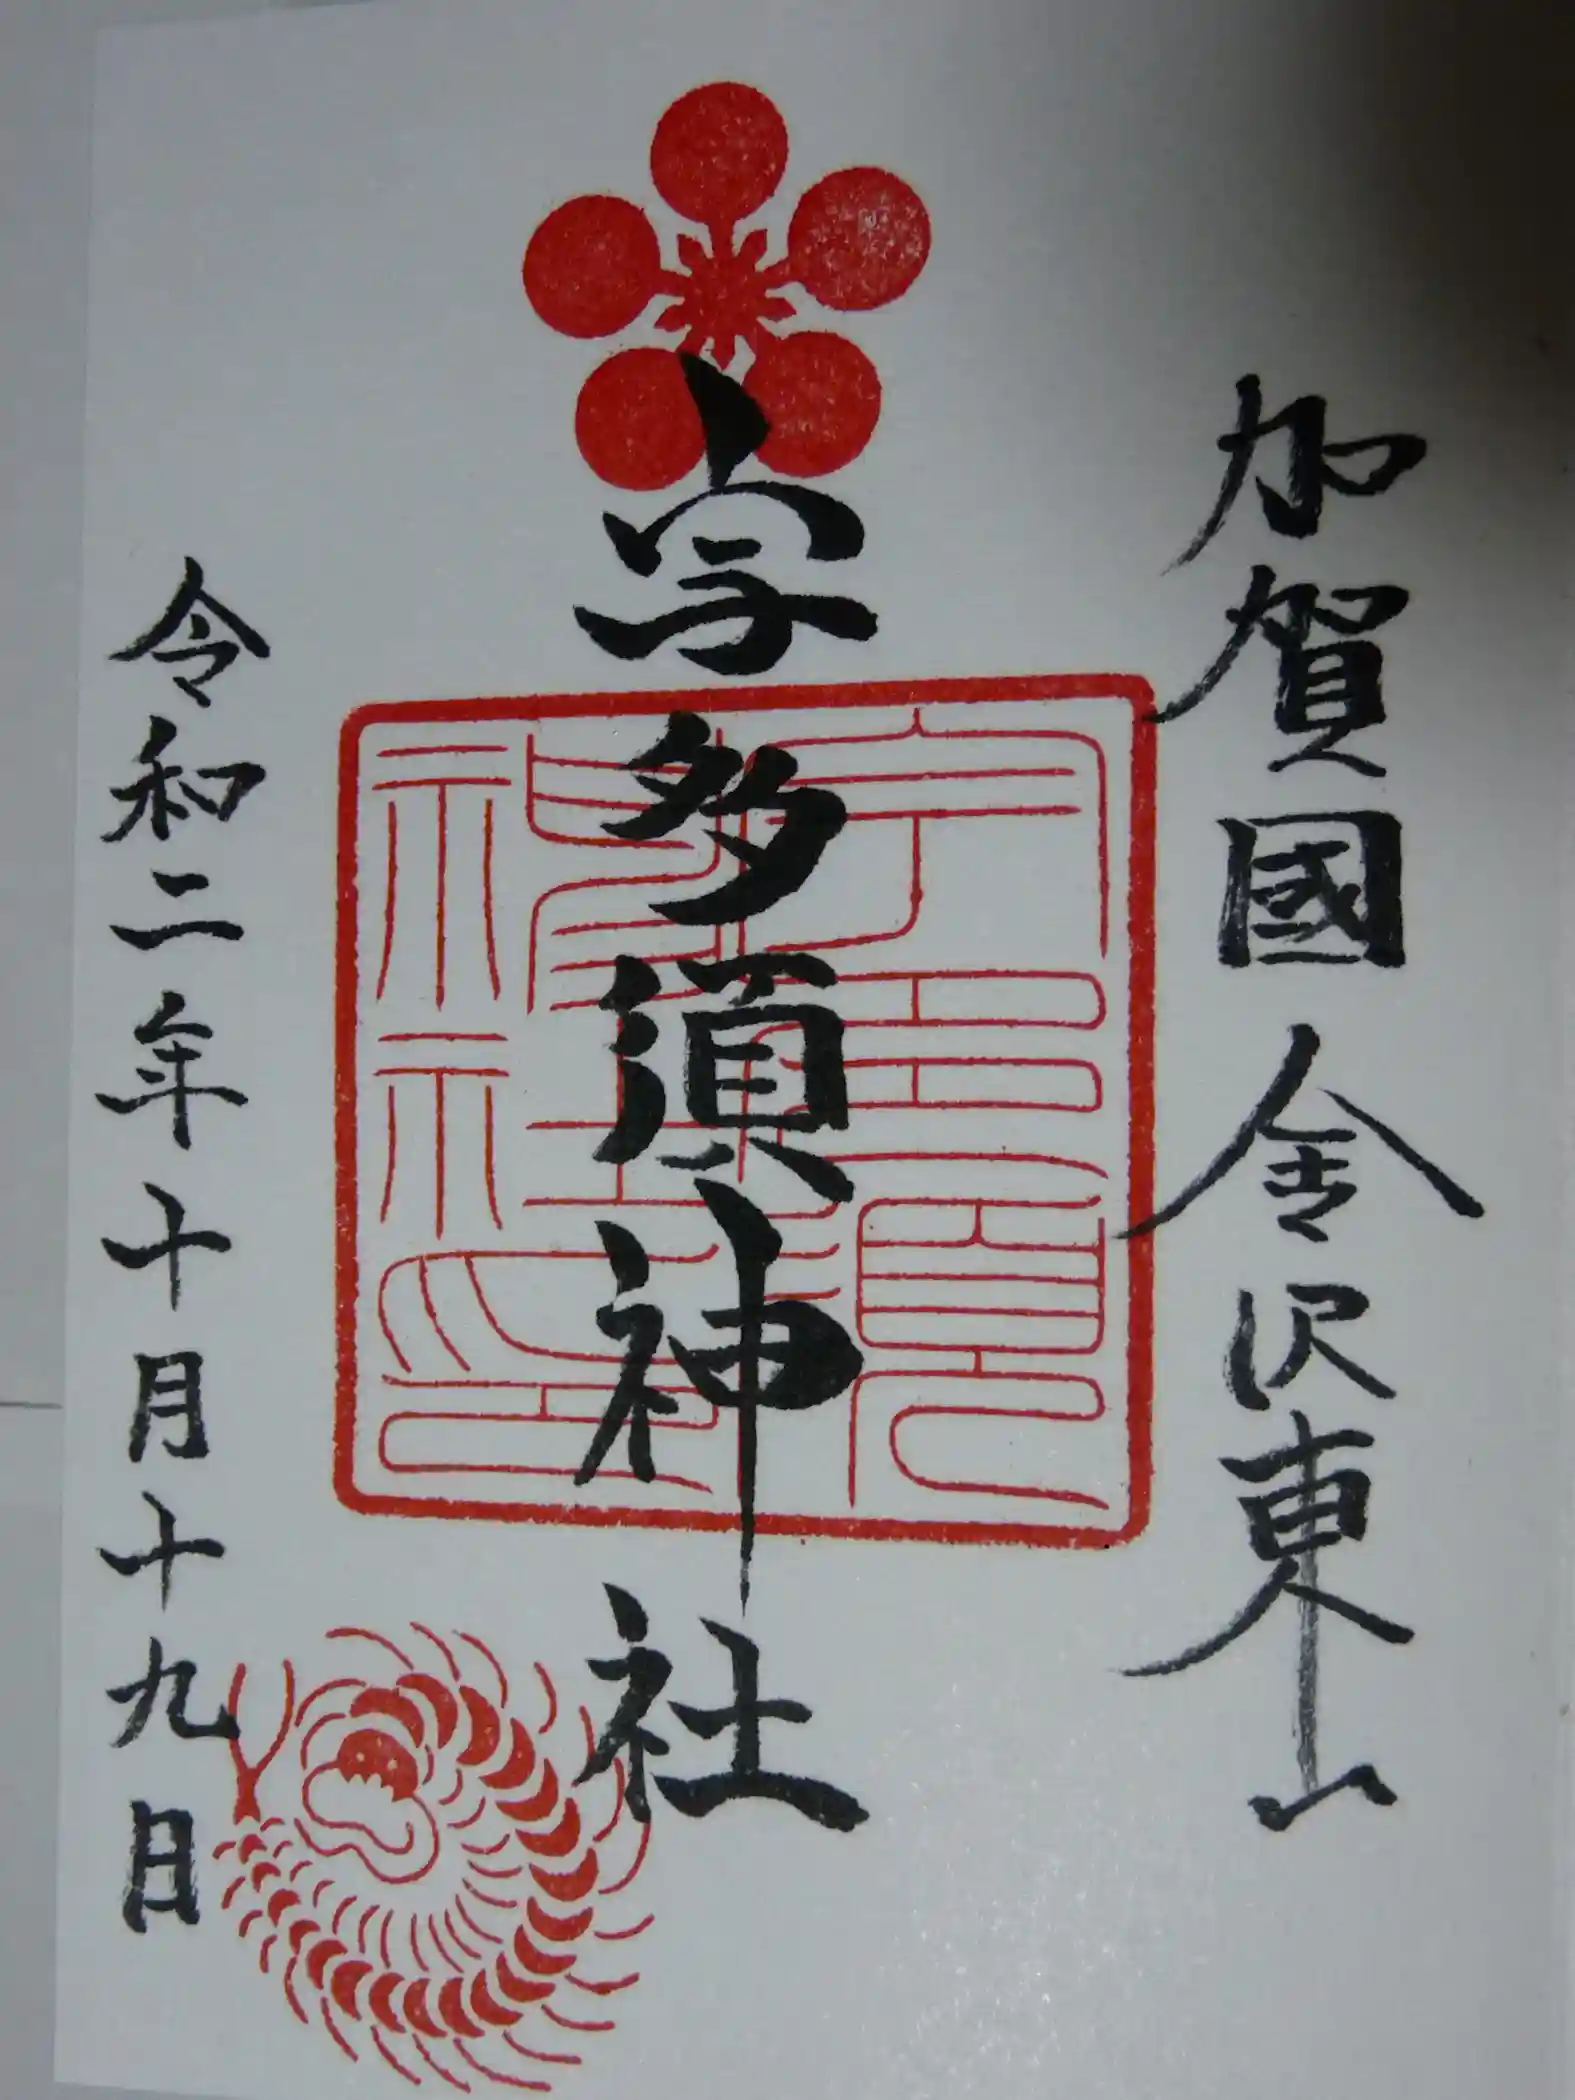 加賀國 金沢東山
宇多須神社
令和二年十月十九日